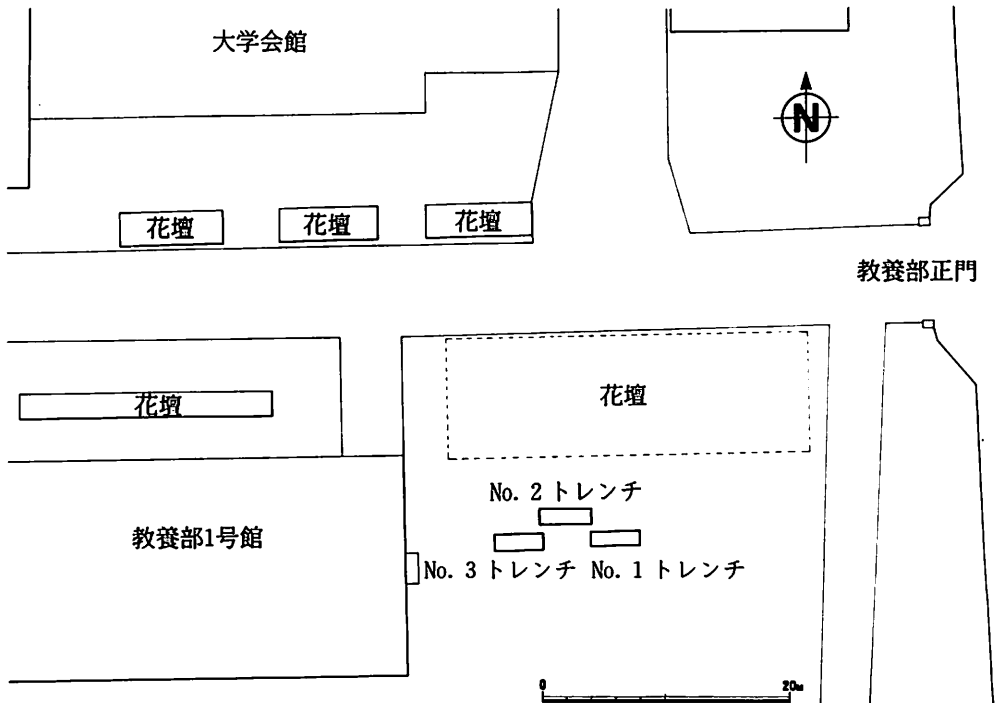 大学会館
N
花壇 花壇 花壇
教養部正門
花壇
花壇
No. 2 トレンチ
教養部1号館
No. 3 トレンチ No. 1 トレンチ
0 20m